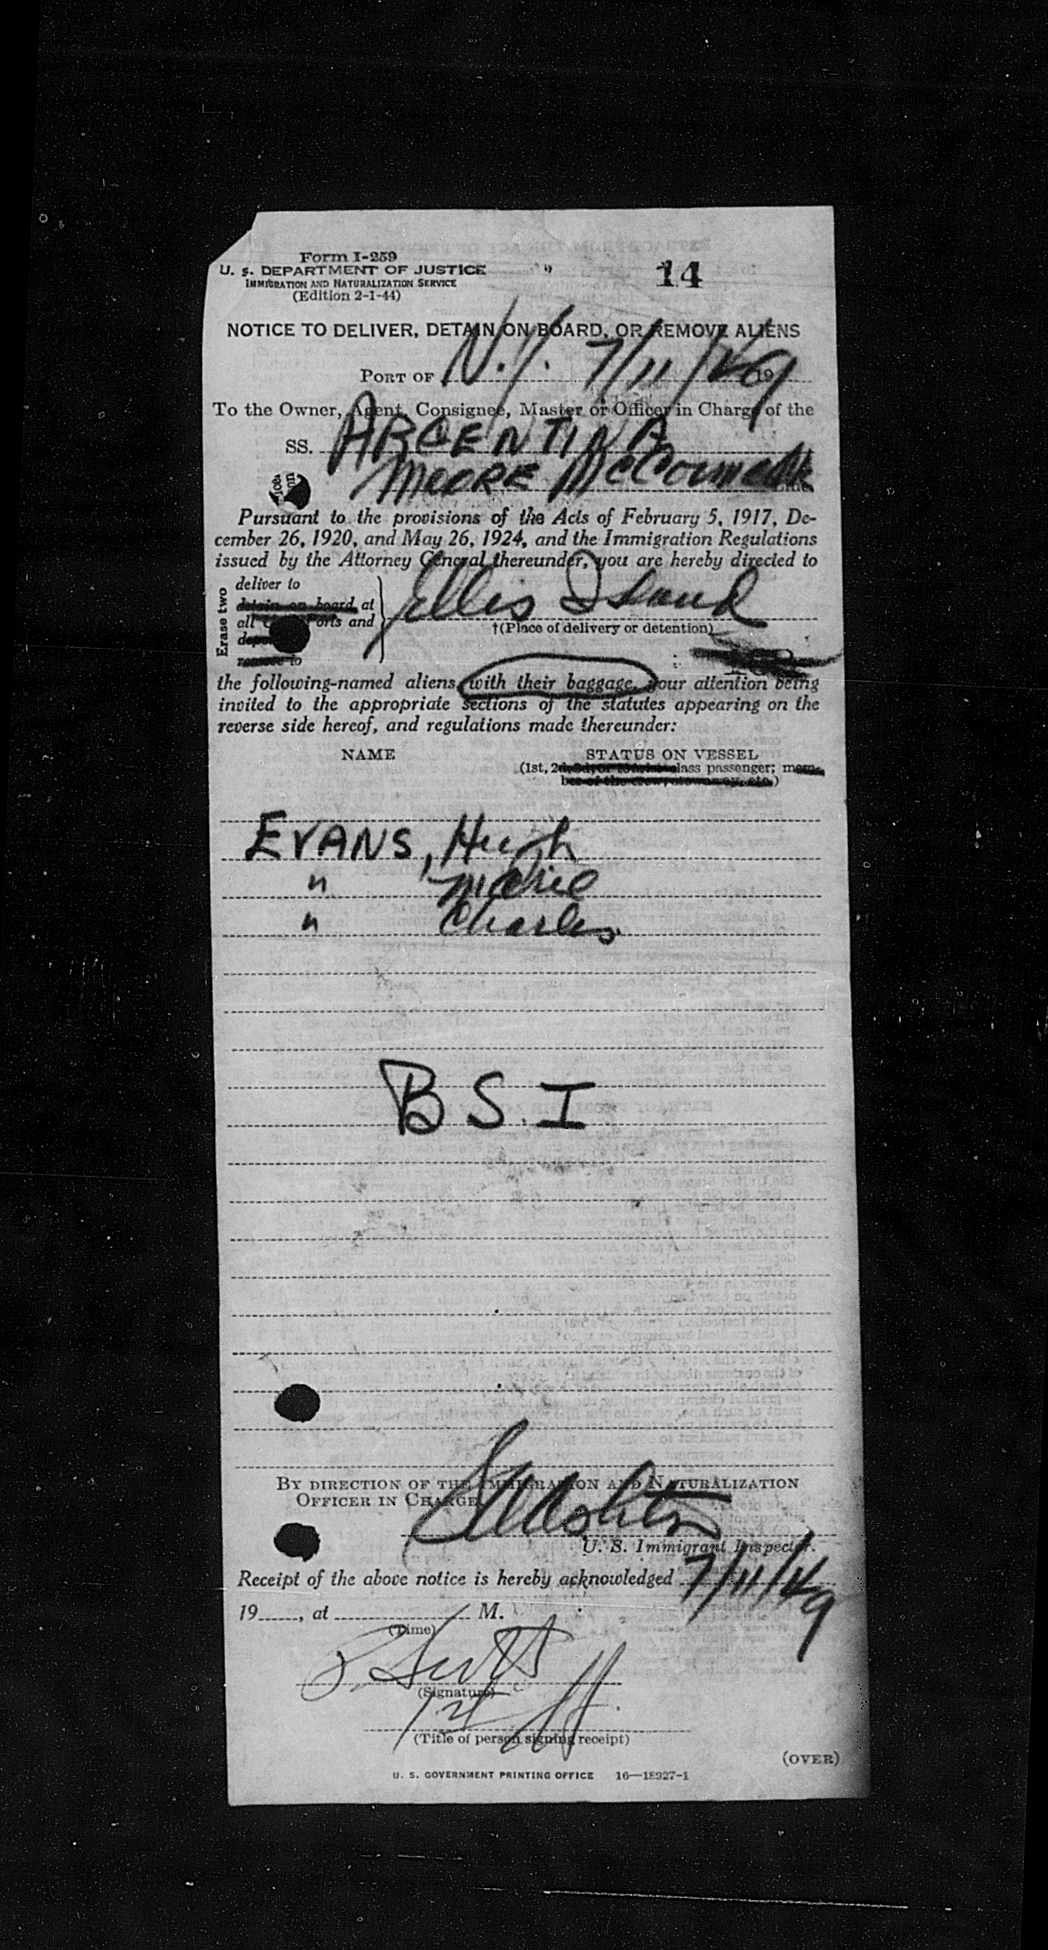 Form I-259
U. S. DEPARTMENT OF JUSTICE 14
IMMIGRATION AND NATURALIZATION SERVICE
(Edition 2-1-44)
NOTICE TO DELIVER, DETAIN ON BOARD, OR REMOVE ALIENS
PORT OF N.Y. 7/11/49 19
To the Owner, Agent, Consignee, Master or Officer in Charge of the
SS. ARGENTINA
MOORE McCormack
Pursuant to the provisions of the Acts of February 5, 1917, De-
cember 26, 1920, and May 26, 1924, and the Immigration Regulations
issued by the Attorney General thereunder, you are hereby directed to
Erase two
deliver to
detain on board at
all Ports and
remove to
Ellis Island
†(Place of delivery or detention)
the following-named aliens, with their baggage, your attention being
invited to the appropriate sections of the statutes appearing on the
reverse side hereof, and regulations made thereunder:
NAME STATUS ON VESSEL
(1st, 2d, 3d, or tourist class passenger; mem-
ber of the crew, stowaway, etc.)
EVANS, Hugh
" Marie
" Charles
B S. I
BY DIRECTION OF THE IMMIGRATION AND NATURALIZATION
OFFICER IN CHARGE.
U. S. Immigrant Inspector.
Receipt of the above notice is hereby acknowledged 7/11/49
19 , at M.
(Time)
(Signature)
(Title of person signing receipt)
(OVER)
U. S. GOVERNMENT PRINTING OFFICE 16—18927-1